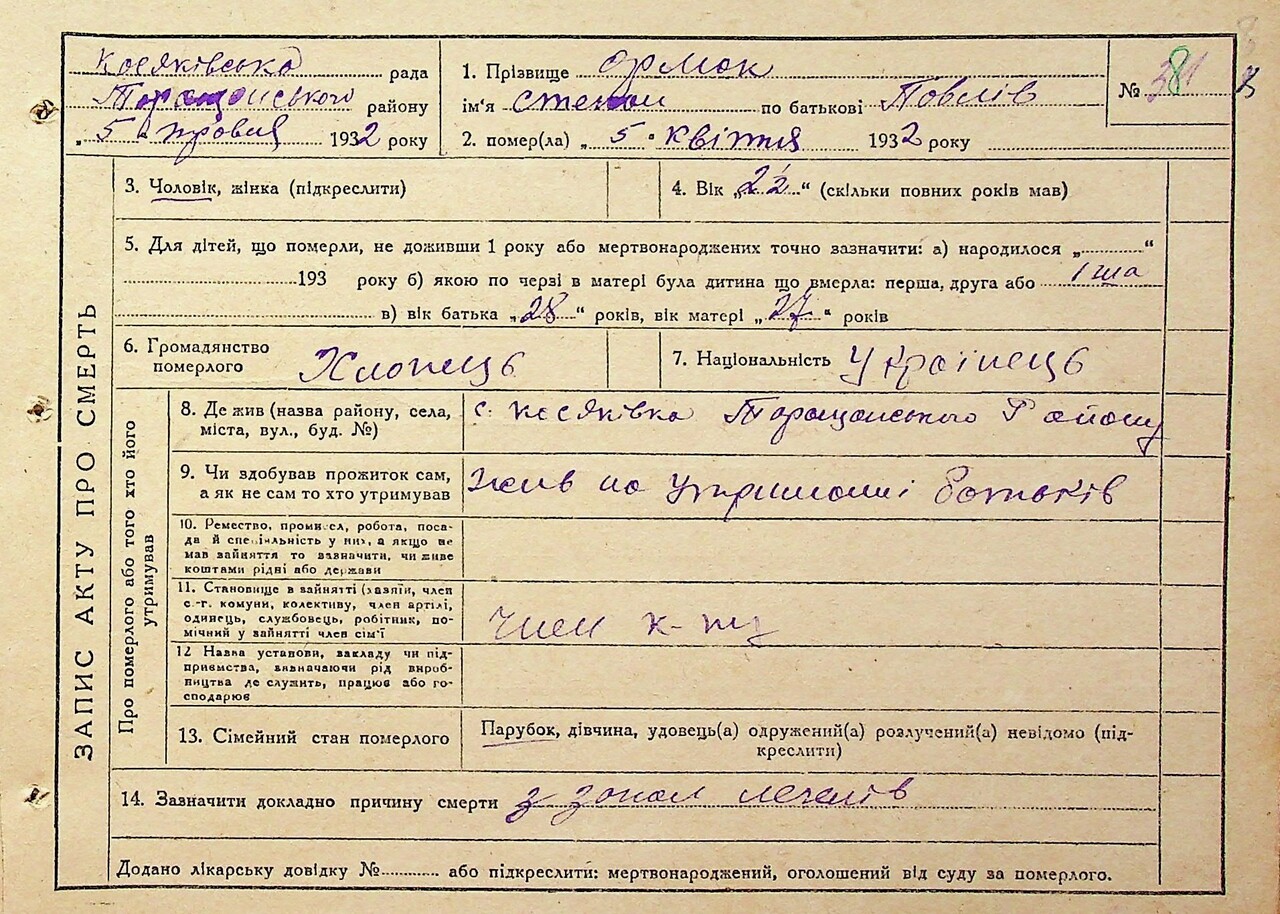 Косяківська рада
Таращанського району
„ 5 " травня 1932 року
1. Прізвище Ормок
ім'я Степан по батькові Повлів
2. помер(ла) „ 5 " квітня 1932 року
№ 381
3. Чоловік, жінка (підкреслити)
4. Вік „ 2½ " (скільки повних років мав)
5. Для дітей, що померли, не доживши 1 року або мертвонароджених точно зазначити: а) народилося „ "
193 року б) якою по черзі в матері була дитина що вмерла: перша, друга або 1 ша
в) вік батька „ 28 " років, вік матері „ 27 " років
6. Громадянство
померлого Хлопець
7. Національність Українець
ЗАПИС АКТУ ПРО СМЕРТЬ
Про померлого або того хто його
утримував
8. Де жив (назва району, села,
міста, вул., буд. №)
с. Косяківка Таращанського Району
9. Чи здобував прожиток сам,
а як не сам то хто утримував
Жив на утриманні батьків
10. Ремество, промисл, робота, поса-
да й спеціяльність у них, а якщо не
мав зайняття то зазначити, чи живе
коштами рідні або держави
11. Становище в зайнятті (хазяїн, член
с.-г. комуни, колективу, член артілі,
одинець, службовець, робітник, по-
мічний у зайнятті член сім'ї
Член к-ту
12 Назва установи, закладу чи під-
приємства, зазначаючи рід вироб-
ництва де служить, працює або го-
сподарює
13. Сімейний стан померлого
Парубок, дівчина, удовець(а) одружений(а) розлучений(а) невідомо (під-
креслити)
14. Зазначити докладно причину смерти з запал легенів
Додано лікарську довідку № або підкреслити: мертвонароджений, оголошений від суду за померлого.